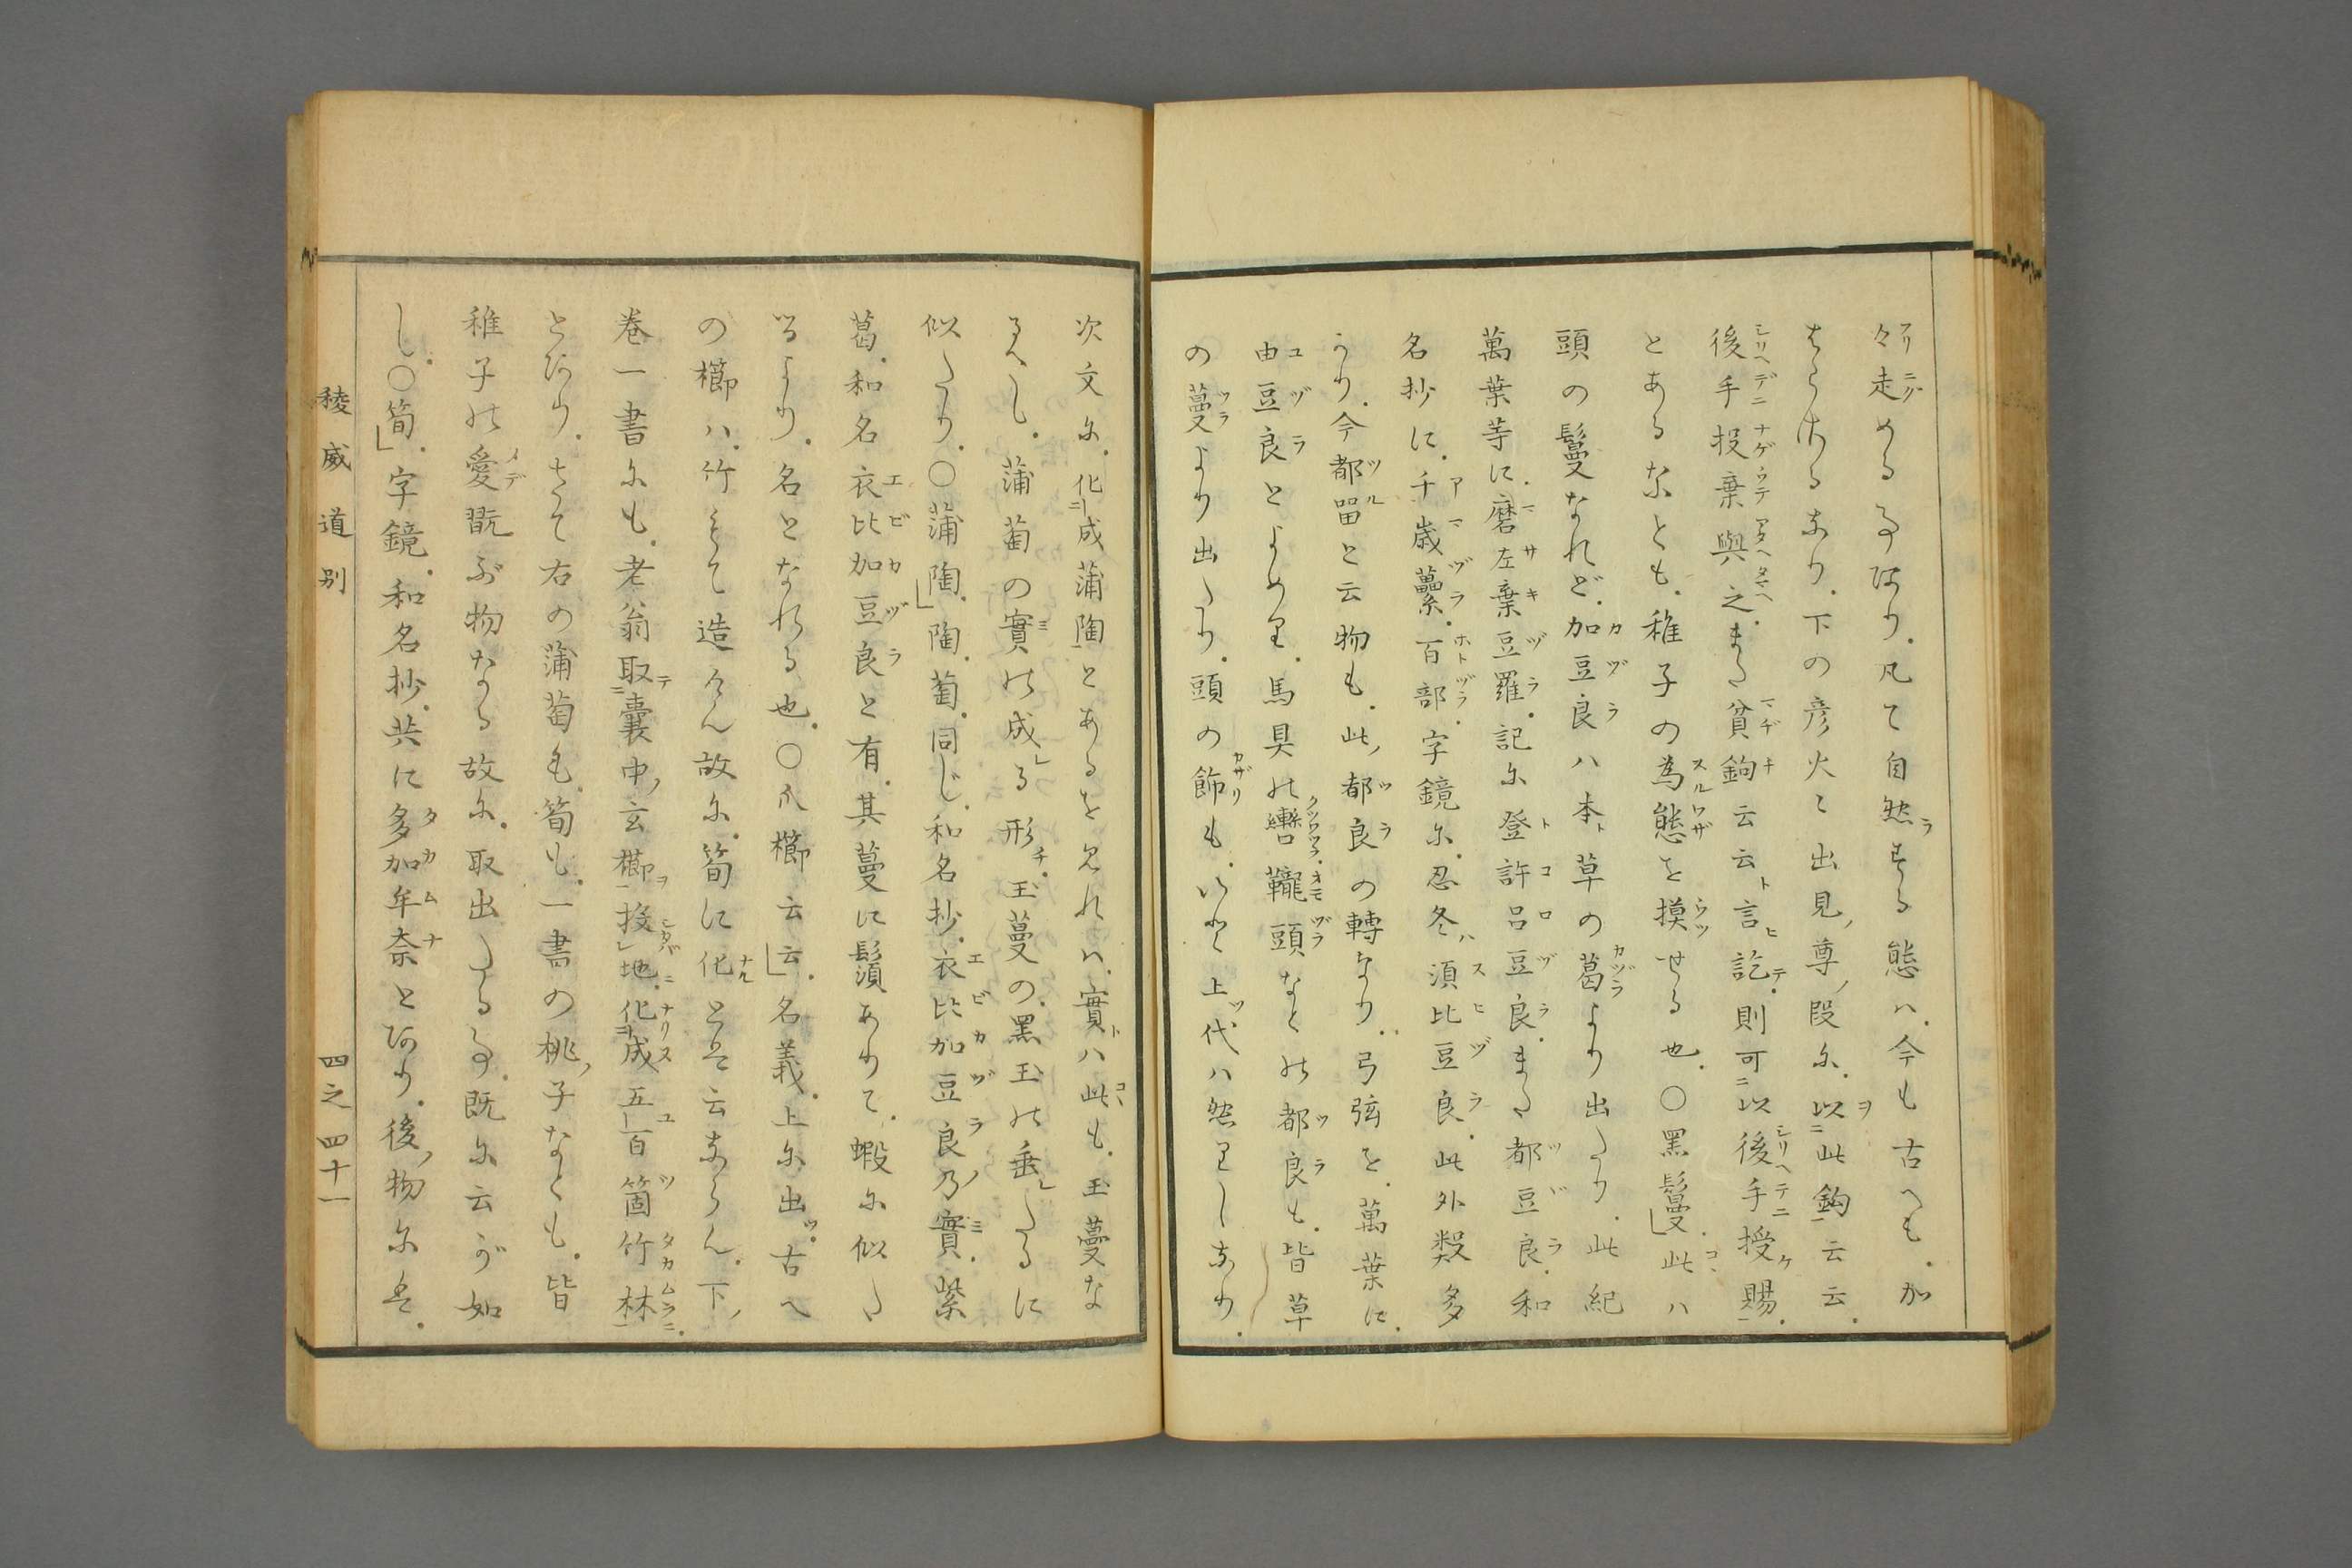 々走める事なり。凡て自然する態ハ。今も古へも。加
はらけるなり。下の彦火々出見尊段尓。以此鉤云云。
後手投棄與之。また貧鉤云云言訖。則可以後手授賜。
とあるなとも。稚子の為態を摸せる也。〇黒鬘。此ハ
頭の鬘なれど。加豆良ハ本草の葛より出たり。此紀
萬葉等に。磨左棄豆羅。記尓登許呂豆良。また都豆良。和
名抄に。千歳虆。百部。字鏡尓。忍冬ハ須比豆良。此外類多
かり。今都留と云物も。此都良の轉なり。弓弦を。萬葉に。
由豆良とよめり。馬具の轡鞚頭なとの都良も。皆草
の蔓より出たり。頭の飾も。いと上代ハ然りしなり。
次文尓。化成蒲陶とあるを見れハ。實ハ此も。玉蔓な
るへし。蒲萄の實の成る形。玉蔓の。黒玉の垂したるに
似たり。〇蒲陶。陶。萄。同じ。和名抄。衣比加豆良乃實。紫
葛。和名衣比加豆良と有。其蔓に鬚ありて。蝦尓似た
るより。名となれる也。〇爪櫛云云。名義。上尓出。古へ
の櫛ハ。竹もて造けん故尓。筍に化とは云ならん。下
巻一書尓も。老翁取嚢中玄櫛投地。化成五百箇竹林。
とあり。さて右の蒲萄も。筍も。一書の桃子なとも。皆
稚子の愛翫ぶ物なる故尓。取出たる事。既尓云が如
し。〇筍。字鏡。和名抄。共に多加牟奈とあり。後物尓は。
稜威道別
四之四十一